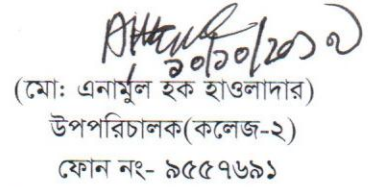 ১০/১০/২০১৭
(মো: এনামুল হক হাওলাদার)
উপপরিচালক(কলেজ-২)
ফোন নং- ৯৫৫৭৬৯১